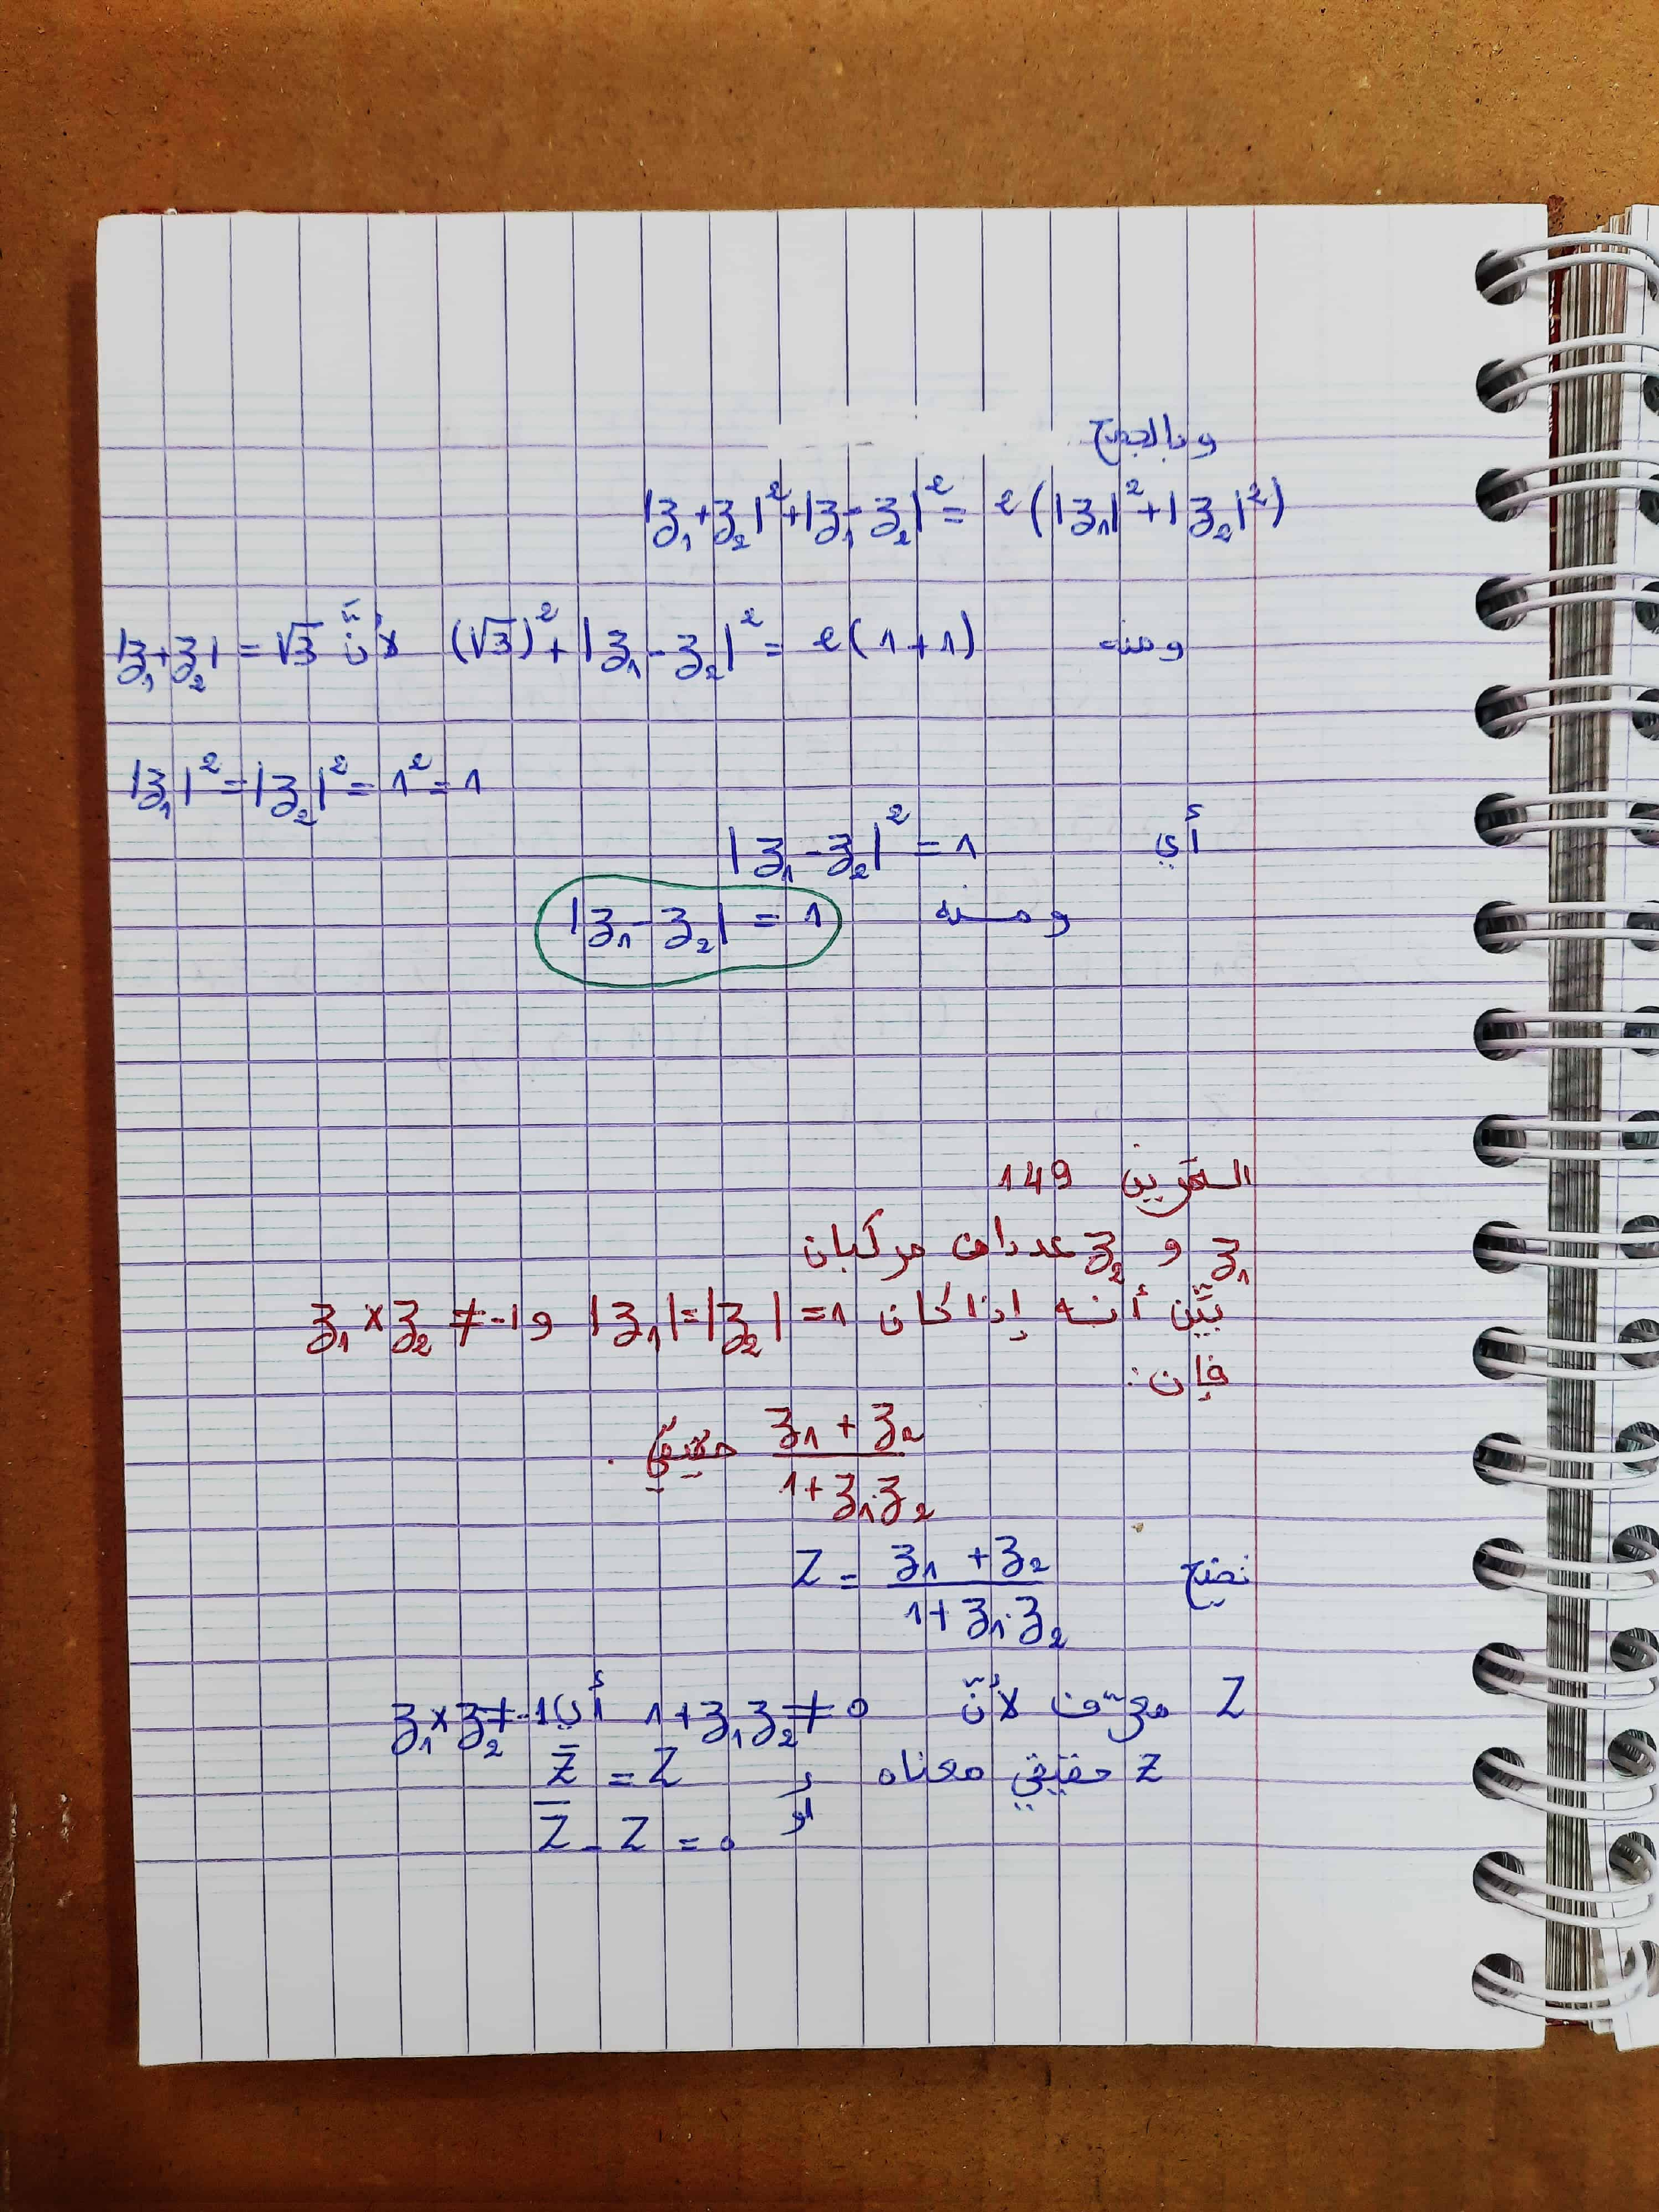 وبالجمع
|z₁+z₂|²+|z₁-z₂|² = 2(|z₁|²+|z₂|²)
ومنه (√3)²+|z₁-z₂|² = 2(1+1) لأنّ |z₁+z₂| = √3
|z₁|²=|z₂|²=1²=1
أي |z₁-z₂|² = 1
ومنه |z₁-z₂| = 1
التمرين 149
z₁ و z₂ عددان مركبان
بيّن أنه إذا كان |z₁|=|z₂|=1 و z₁×z₂ ≠ -1
فإن:
(z₁+z₂)/(1+z₁.z₂) حقيقي .
نضع Z = (z₁+z₂)/(1+z₁.z₂)
Z معرّف لأنّ 1+z₁z₂≠0 أي z₁×z₂≠-1
Z حقيقي معناه Z̄ = Z
أو Z̄ - Z = 0